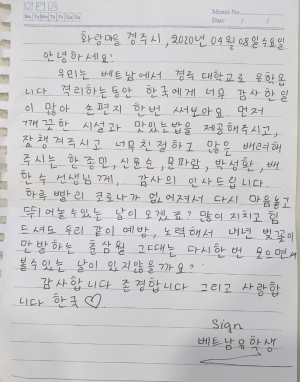 Memo No.
Mo Tu We Th Fr Sa Su
Date / /
화랑마을 경주시, 2020년 04월 08일 수요일.
안녕하세요!
우리는 베트남에서 경주 대학교로 유학옵
니다. 격리하는동안 한국에게 너무 감사한 일
이 많아 손편지 한번 써보아요. 먼저
깨끗한 시설과 맛있는밥을 제공해주시고,
잘 챙겨주시고 너무친절하고 많은 배려해
주시는 한 종민, 신윤순, 문파람, 박성환, 배
한수 선생님께, 감사의 인사드립니다.
하루 빨리 코로나가 없어져서 다시 마음놓고
뛰어놀수있는 날이 오겠죠? 많이 지치고 힘
드셔도 우리 같이 예방, 노력해서 내년 벚꽃이
만발하는 춘삼월 그때는 다시한번 웃으면서
볼수있는 날이 있지않을까요?
감사합니다 존경합니다 그리고 사랑합
니다 한국♡.
Sign
베트남유학생